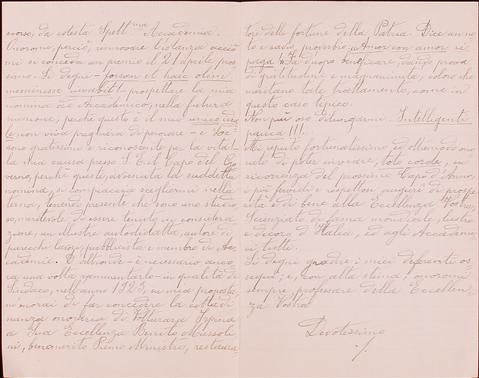 scorso, da codesta Spett.ma Accademia.
Onoromi, perciò, rinnovare l'istanza acciò
mi si conceda un premio il 21 aprile pros-
simo. Si degni - forsan et haec olim
meminisse iuvabit! prospettare la mia
nomina ad Accademico, nella futura
riunione, perchè questo è il mio unico idea-
le non vivo preghiera di favore - e Le
sono gratissimo e riconoscente per la vita!
la mia causa presso S. E. il Capo del Go-
verno, perchè questi, avvenuta la suddetta
nomina, si compiaccia scegliermi nella
terna, tenendo presente che sono uno studio-
so, meritevole di essere tenuto in considera-
zione, un illustre autodidatta, autore di
parecchi lavori, pubblicista e membro di Ac-
cademie. E all'uopo è necessario anco-
ra una volta rammentarlo in qualità di
Sindaco, nell'anno 1923, su mia proposta
mi onorai di far concedere la cittadi-
nanza onoraria di Volturara Irpina
a Sua Eccellenza Benito Mussoli-
ni, benemerito Primo Ministro, restaura-
tore delle fortune della Patria. Dice un no-
to e savio proverbio "Amor con amor si
paga". Fa d'uopo beneficare, dando prova
di gratitudine e magnanimità, coloro che
meritano tale trattamento, come in
questo caso tipico.
Non più oso dilungarmi. Intelligenti
pauca!!!
Mi reputo fortunatissimo ed oltremodo ono-
rato di poter inviare, toto corde, in
ricorrenza del prossimo Capo d'Anno,
i più fervidi e rispettosi auguri di prospe-
rità e di bene alla Eccellenza Vostra,
Scienziato di fama mondiale, lustro
e decoro d'Italia, ed agli Accademi-
ci tutti.
Si degni gradire i miei deferenti os-
sequi, e, con alta stima, onoromi
sempre professare della Eccellen-
za Vostra
Devotissimo